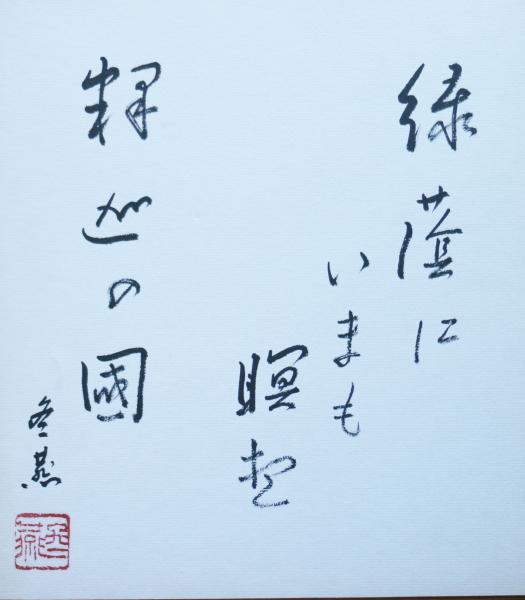 緑蔭に
いまも
瞑想
釋迦の國